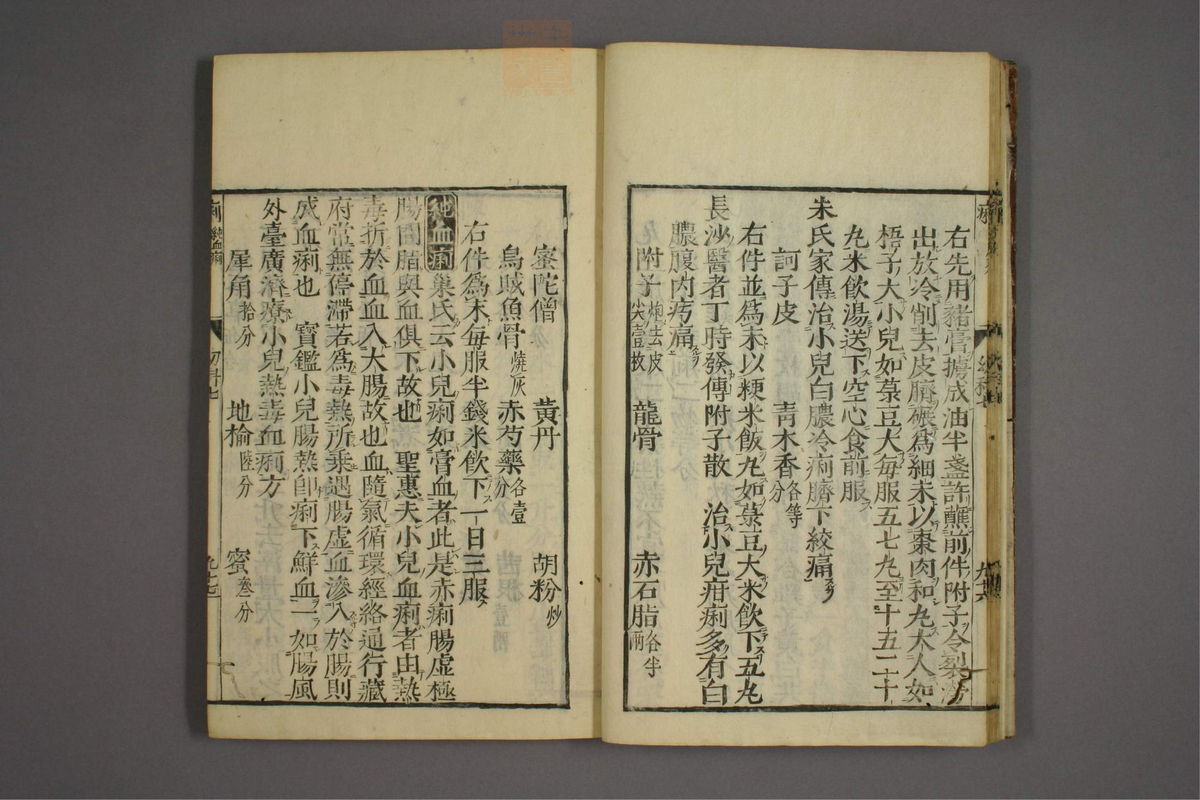 右先用猪膏搪成油半盞許蘸前件附子令裂
出放冷削去皮臍碾為細末以棗肉和丸木人如
梧子大小兒如菉豆大每服五七丸至十五二十
丸米飲湯送下空心食前服
朱氏家傳治小兒白膿冷痢臍下絞痛
訶子皮 青木香各等分
右件並為末以粳米飯丸如菉豆大米飲下五丸
長沙醫者丁時發傳附子散 治小兒疳痢多有白
膿腹內疞痛
附子炮去皮尖壹枚 龍骨 赤石脂各半兩
蜜陀僧 黃丹 胡粉炒
烏賊魚骨燒灰 赤芍藥各壹分
右件為末每服半錢米飲下一日三服
純血痢 巢氏云小兒痢如膏血者此是赤痢腸虛極
腸間脂與血俱下故也 聖惠夫小兒血痢者由熱
毒折於血血入大腸故也血隨氣循環經絡通行藏
府常無停滯若為毒熱所乘遇腸虛血滲入於腸則
成血痢也 寶鑑小兒腸熱即痢下鮮血一如腸風
外臺廣濟療小兒熱毒血痢方
犀角拾分 地榆陸分 蜜叁分
痢 純血痢 幼科七 九十七